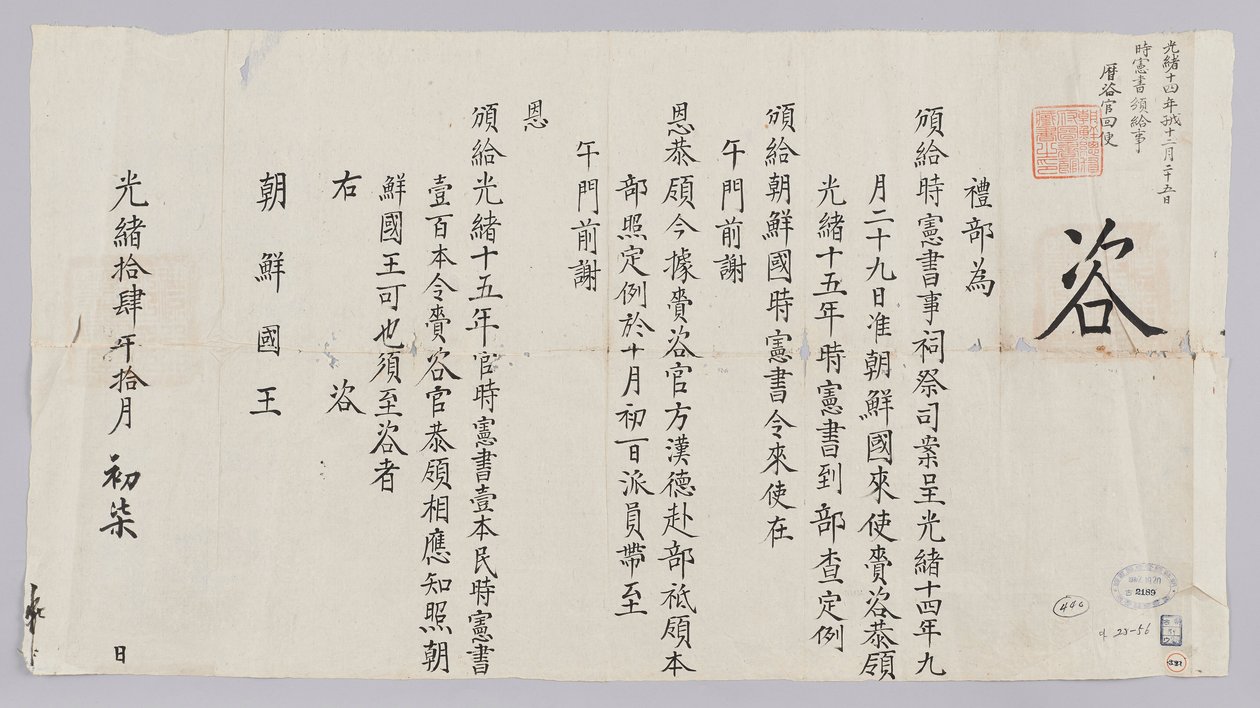 光緒十四年戊十二月二十五日
時憲書頒給事
曆咨官回使
咨
禮部為
頒給時憲書事祠祭司案呈光緒十四年九
月二十九日准朝鮮國來使賫咨恭領
光緒十五年時憲書到部查定例
頒給朝鮮國時憲書令來使在
午門前謝
恩恭領今據賫咨官方漢德赴部祗領本
部照定例於十月初一日派員帶至
午門前謝
恩
頒給光緒十五年官時憲書壹本民時憲書
壹百本令賫咨官恭領相應知照朝
鮮國王可也須至咨者
右咨
朝鮮國王
光緒拾肆年拾月初柒日
2189
446
d 23-56